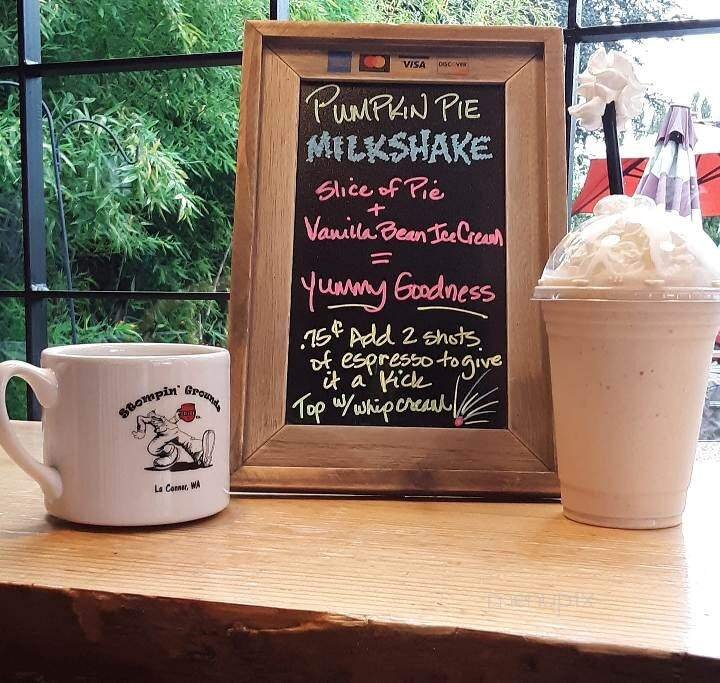 VISA DISCOVER
PUMPKIN PIE
MILKSHAKE
Slice of Pie
+
Vanilla Bean Ice Cream
=
Yummy Goodness
.75¢ Add 2 shots
of espresso to give
it a Kick
Top w/ whip cream
Stompin' Grounds
La Conner, WA
menupix